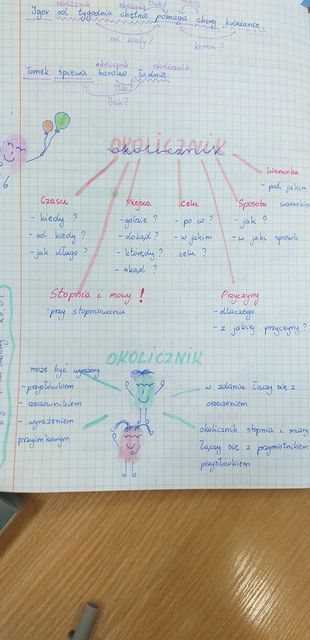 okolicznik okolicznik
Igor od tygodnia chętnie pomaga chorej koleżance.
od kiedy? komu?
okolicznik okolicznik
Tomek śpiewa bardzo ładnie.
Jak?
OKOLICZNIK
okolicznik
Warunku
- pod jakim
warunkiem
Czasu
- kiedy?
- od kiedy?
- jak długo?
Miejsca
- gdzie?
- dokąd?
- którędy?
- skąd?
Celu
- po co?
- w jakim
celu?
Sposobu
- jak?
- w jaki sposób
6
Stopnia i miary!
- przy stopniowaniu
Przyczyny
- dlaczego
- z jakiej przyczyny?
OKOLICZNIK
może być wyrażony
- przysłówkiem
- rzeczownikiem
- wyrażeniem
przyimkowym
w zdaniu łączy się z
orzeczeniem
okolicznik stopnia i miary
łączy się z przymiotnikiem
przysłówkiem